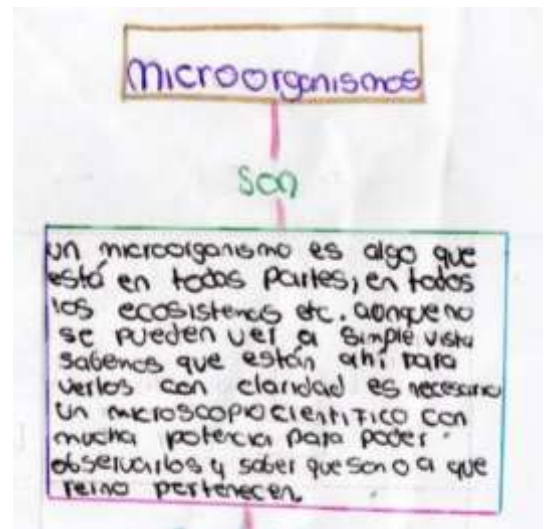 Microorganismos
son
un microorganismo es algo que
está en todos partes, en todos
los ecosistemas etc. aonque no
se pueden ver a simple vista
sabemos que están ahí para
verlos con claridad es necesario
un microscopio cientifico con
mucha potencia para poder
observarlos y saber que son o a que
reino pertenecen.